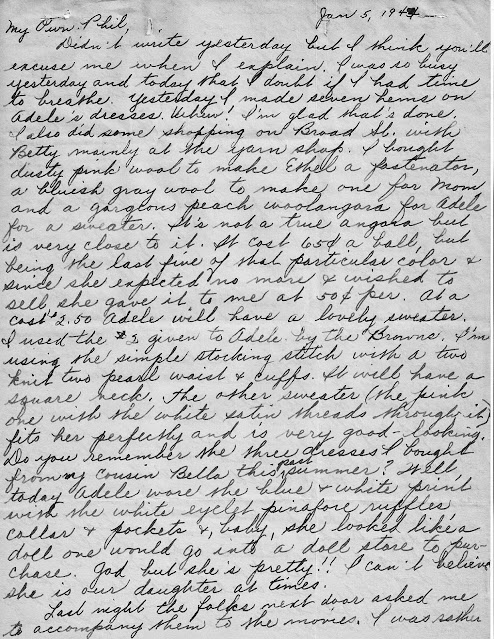 Jan 5, 1944
My Own Phil,
Didn't write yesterday but I think you'll
excuse me when I explain. I was so busy
yesterday and today that I doubt if I had time
to breathe. Yesterday I made seven hems on
Adele's dresses. Whew! I'm glad that's done.
I also did some shopping on Broad St. with
Betty mainly at the yarn shop. I bought
dusty pink wool to make Ethel a fastenator,
a bluish gray wool to make one for Mom
and a gorgious peach woolangora for Adele
for a sweater. It's not a true angora but
is very close to it. It cost 65¢ a ball, but
being the last five of that particular color &
since she expected no more & wished to
sell she gave it to me at 50¢ per. At a
cost $2.50 Adele will have a lovely sweater.
I used the $2 given to Adele by the Browns. I'm
using the simple stocking stitch with a two
knit two pearl waist & cuffs. It will have a
square neck. The other sweater (the pink
one with the white satin threads through it)
fits her perfectly and is very good-looking.
Do you remember the three dresses I bought
from my cousin Bella this past summer? Well,
today Adele wore the blue & white print
with the white eyelet pinafore ruffles,
collar & pockets &, baby, she looked like a
doll one would go into a doll store to pur-
chase. God but she's pretty!! I can't believe
she is our daughter at times.
Last night the folks next door asked me
to accompany them to the movies. I was rather